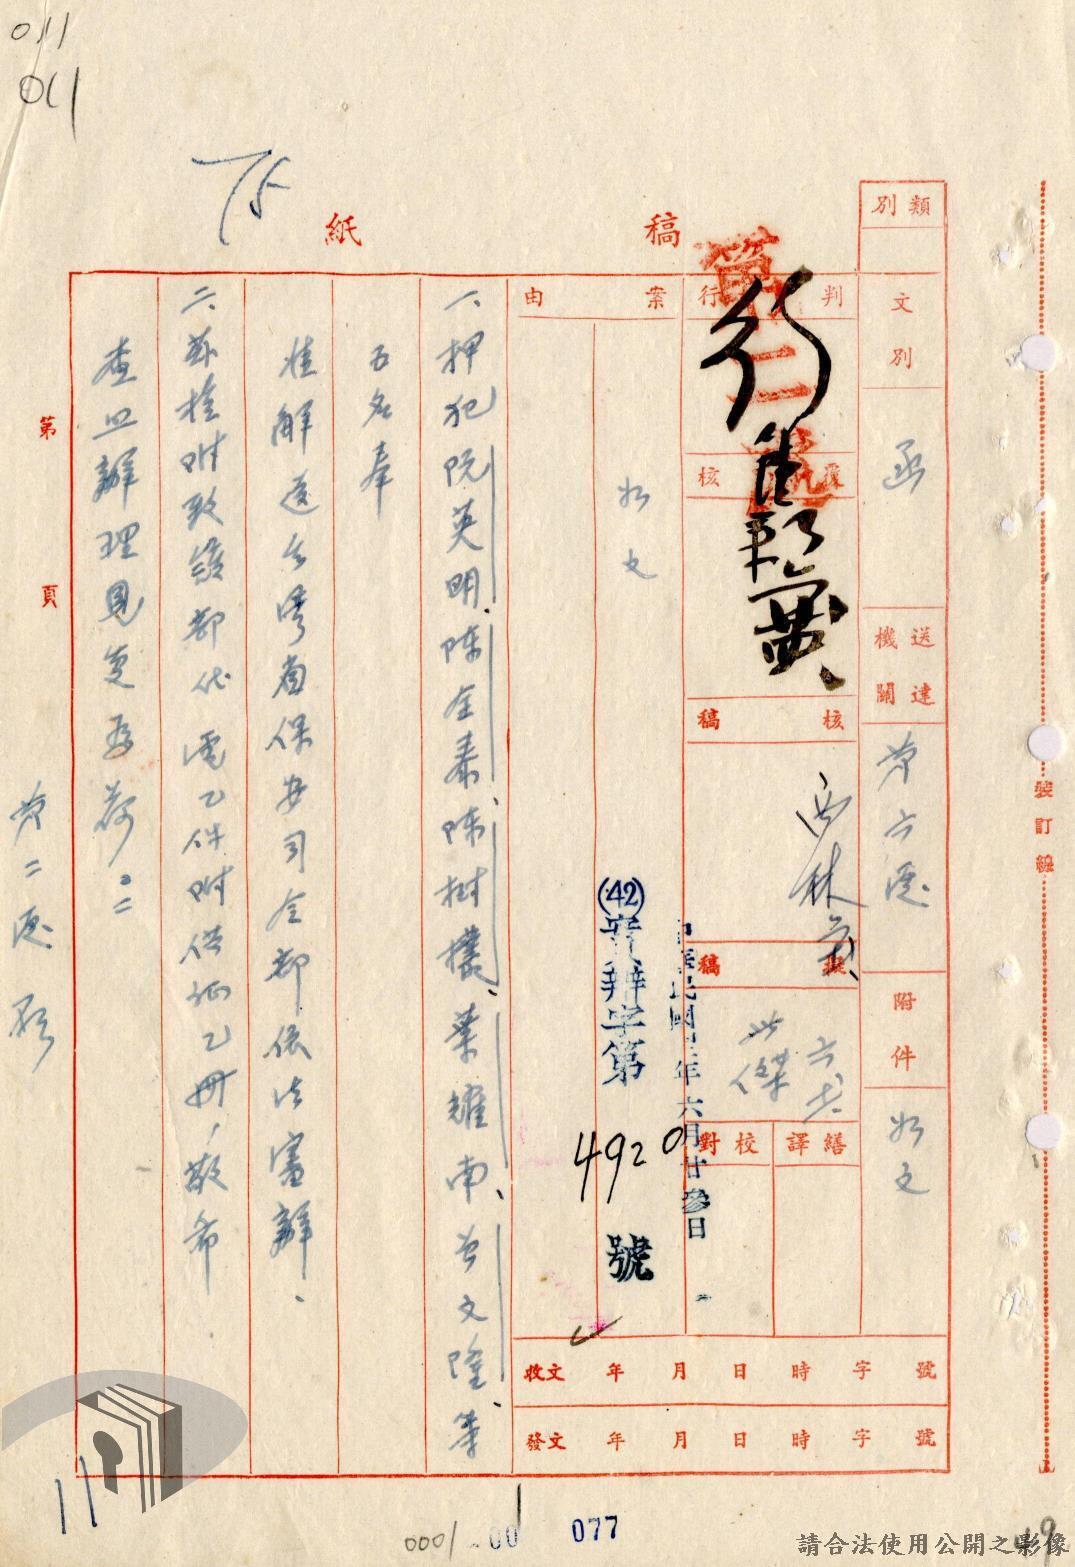 011
011
75
稿紙
類別
文別
函
送達機關
第六處
附件
如文
判行
行
覆核
核稿
擬稿
繕譯
校對
中華民國四二年六月廿參日
案由
如文
(42)
字第4920號
收文 年 月 日 時 字 號
發文 年 月 日 時 字 號
一、押犯阮英明、陳金泰、陳樹攘、葉耀南、曾文隆等
五名奉
准解送台灣省保安司令部依法審辦、
二、茲檢附致該部代電乙件附供證乙冊，敬希
查照辦理見復為荷。
第二處啟
第 頁
裝訂線
11
0001
00
077
49
請合法使用公開之影像